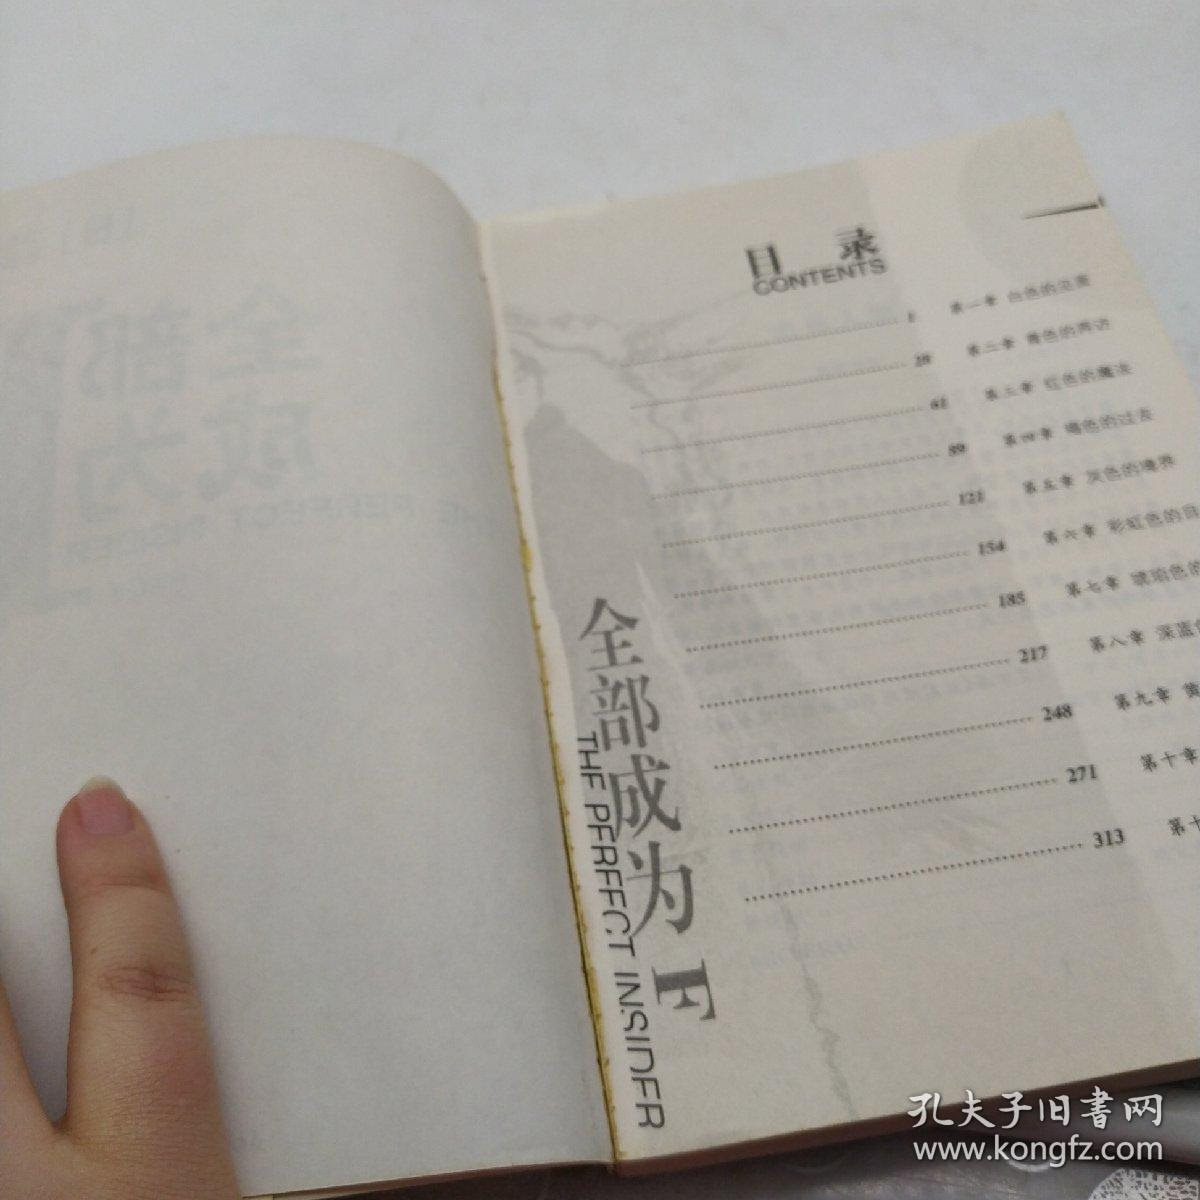 目 录
CONTENTS
1 第一章 白色的
28 第二章 青色的再访
61 第三章 红色的魔法
89 第四章 褐色的过去
121 第五章 灰色的境界
154 第六章 彩虹色的
185 第七章 琥珀色的
217 第八章 深蓝色
248 第九章
271 第十章
313 第十
全部成为F
THE PERFECT INSIDER
全部
成为
THE PERFECT INSIDER
孔夫子旧书网
www.kongfz.com